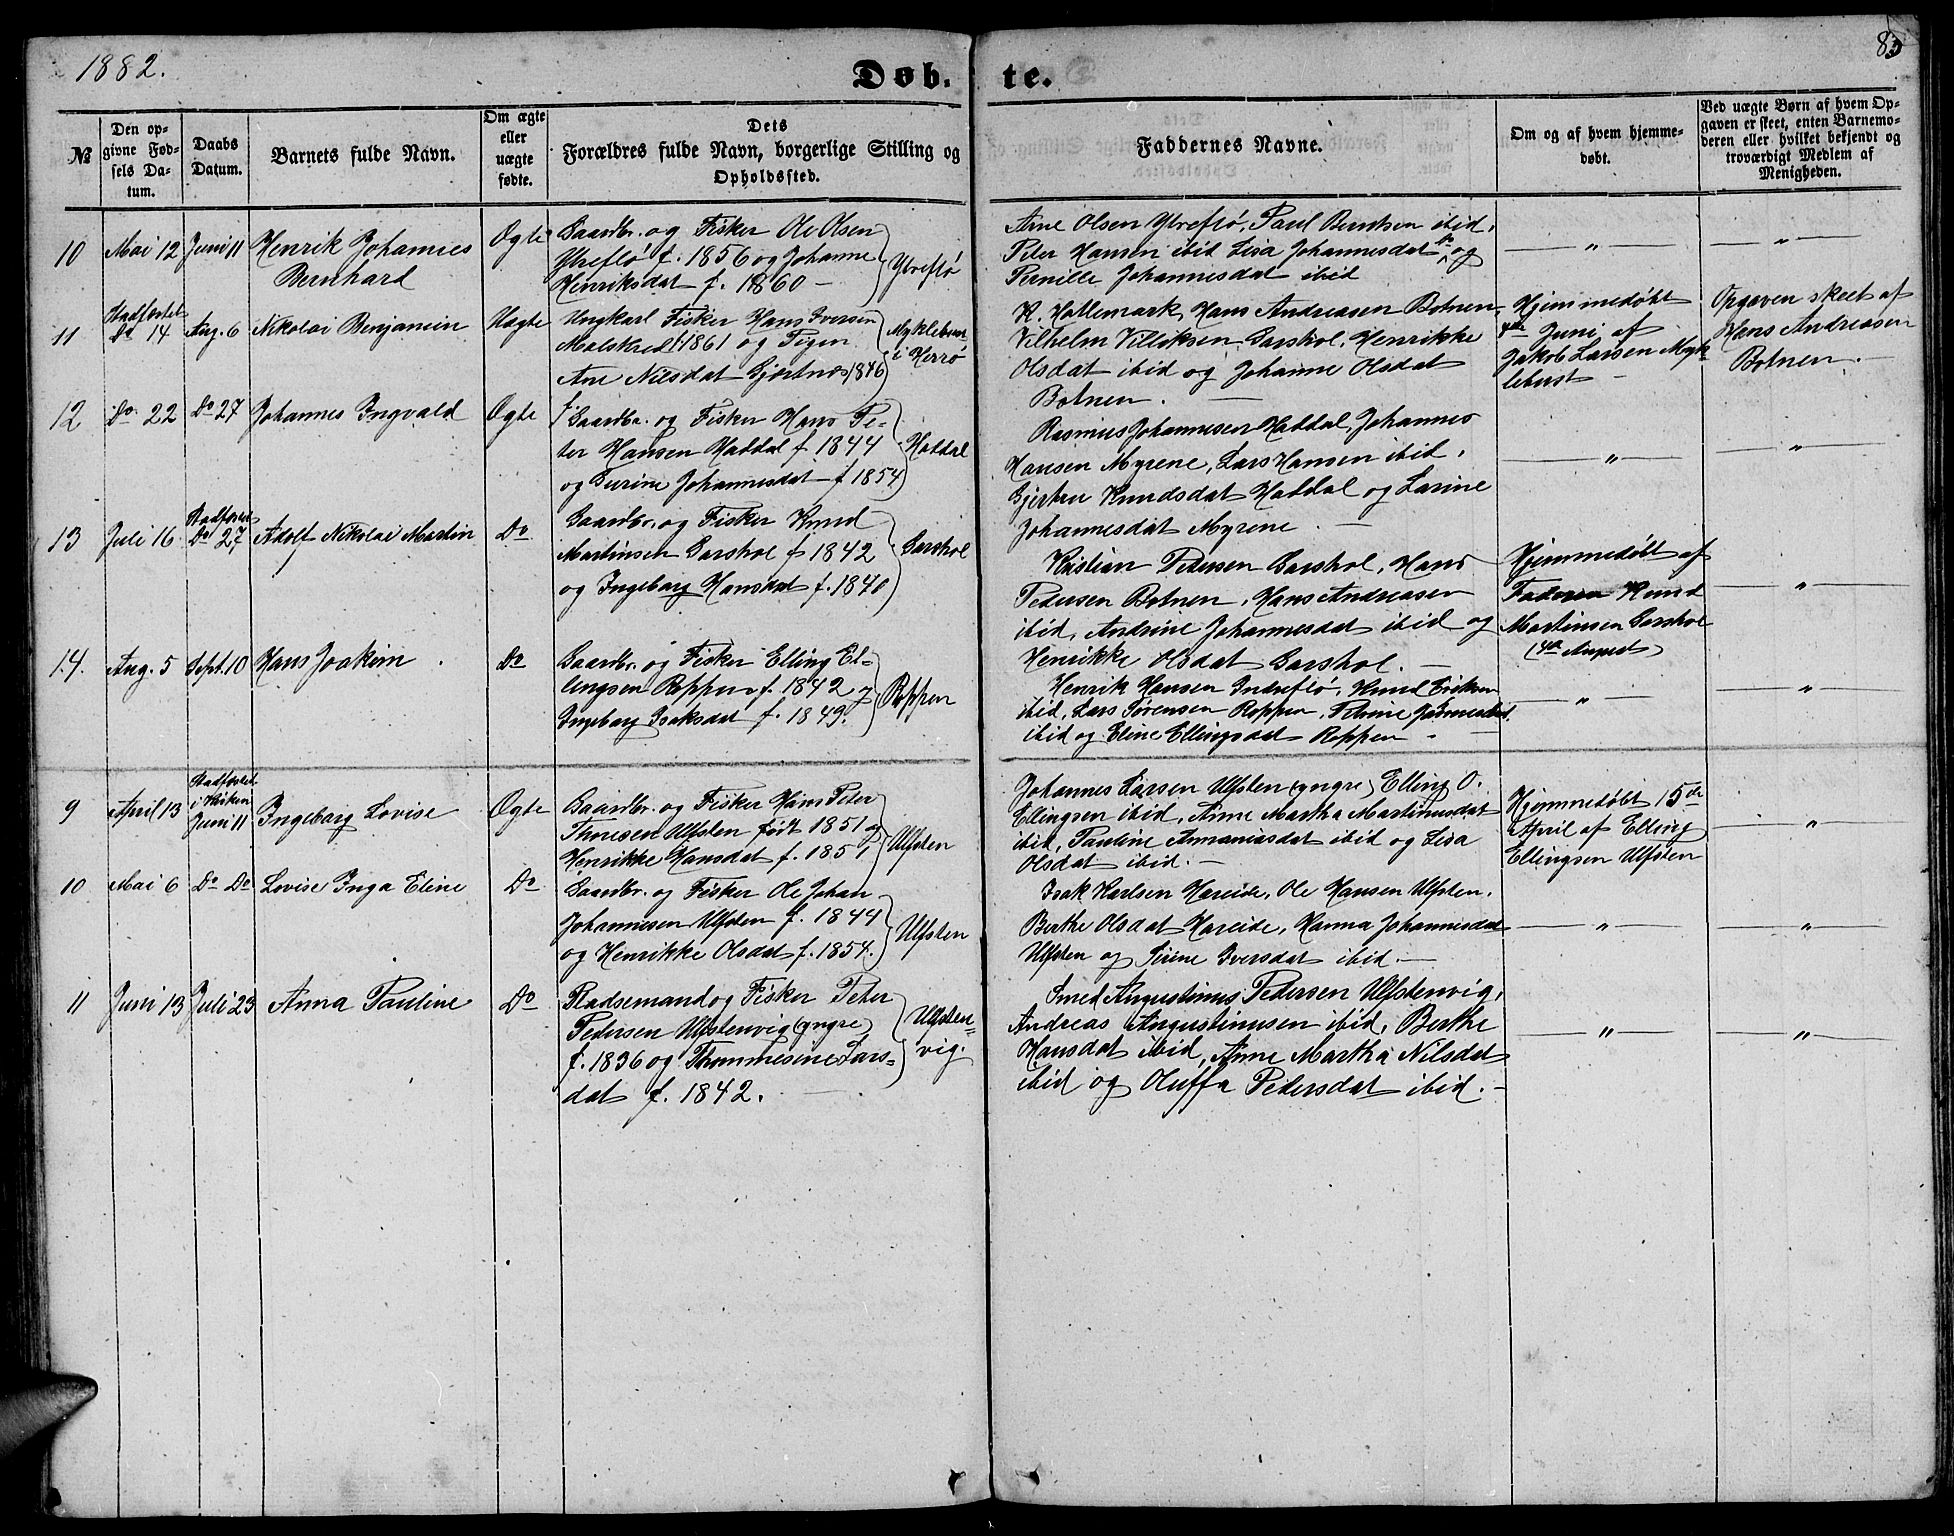 1882.
Døb.
te.
83
№
Den op-
givne Fød-
sels Da-
tum.
Daabs
Datum.
Barnets fulde Navn.
Om ægte
eller
uægte
fødte.
Dets
Forældres fulde Navn, borgerlige Stilling og
Opholdssted.
Faddernes Navne.
Om og af hvem hjemme-
døbt.
Ved uægte Børn af hvem Op-
gaven er skeet, enten Barnemo-
deren eller hvilket bekjendt og
troværdigt Medlem af
Menigheden.
10 Mai 12 Juni 11 Henrik Johannes
Bernhard
Ægte
Gaardbr. og Fisker Ole Olsen
Ytreflø f. 1856 og Johanne
Henriksdat f. 1860 —
Ytreflø
Arne Olsen Ytreflø, Paul Berntsen ibid,
Peter Hansen ibid Lisa Johannesdat og
Pernille Johannesdat ibid
— " —
— " —
11 Do 14 Stadfæstet Aug. 6 Nikolai Benjamin
Uægte
Ungkarl Fisker Hans Iversen
Molskred f 1861 og Pigen
Ane Nilsdat Gjertnes 1846
Myklebust
i Herrø
K. Hollemark, Hans Andreasen Botnen,
Vilhelm Villiksen Garshol, Henrikke
Olsdat ibid og Johanne Olsdat
Botnen. —
Hjemmedøbt
4de Juni af
Jakob Larsen Myk-
lebust —
Opgaven skeet af
Hans Andreasen
Botnen. —
12 Do 22 Do 27 Johannes Ingvald
Ægte
Gaardbr. og Fisker Hans Pe-
ter Hansen Haddal f 1844
og Gurine Johannesdat f 1854
Haddal
Rasmus Johannesen Haddal, Johannes
Hansen Myrene, Lars Hansen ibid,
Gjertru Knudsdat Haddal og Larine
Johannesdat Myrene. —
— " —
— " —
13 Juli 16 Stadfæstet Do 27 Adolf Nikolai Martin
Do
Gaardbr. og Fisker Knud
Martinsen Garshol f 1842
og Ingeborg Hansdat f. 1840
Garshol
Kristian Pedersen Garshol, Hans
Pedersen Botnen, Hans Andreasen
ibid, Andrine Johannesdat ibid og
Henrikke Olsdat Garshol. —
Hjemmedøbt af
Faderen Knud
Martinsen Garshol
(4de August)
— " —
14. Aug. 5 Sept. 10 Hans Joakim
Do
Gaardbr. og Fisker Elling El-
lingsen Roppen f. 1842 og
Ingeborg Isaksdat f. 1849.
Roppen
Henrik Hansen Indreflø, Knud Eriksen
ibid, Lars Sørensen Roppen,
ibid og Eline Ellingsdat Roppen —
— " —
— " —
9 April 13 Stadfæstet
i Kirken
Juni 11 Ingeborg Lovise
Ægte
Gaardbr. og Fisker Hans Peter
Thoresen Ulfsten født 1851 og
Henrikke Hansdat f. 1851
Ulfsten
Johannes Larsen Ulfsten (yngre) Elling O.
Ellingsen ibid, Anne Martha Martinusdat
ibid, Pauline Ananiasdat ibid og Lisa
Olsdat ibid. —
Hjemmedøbt 15de
April af Elling
Ellingsen Ulfsten
— " —
10 Mai 6 Do Do Lovise Inga Eline
Do
Gaardbr. og Fisker Ole Johan
Johannesen Ulfsten f. 1844
og Henrikke Olsdat f. 1854.
Ulfsten
Isak Karlsen Hareide, Ole Hansen Ulfsten,
Berthe Olsdat Hareide, Hanna Johannesdat
Ulfsten og Sirine Iversdat ibid. —
— " —
— " —
11 Juni 13 Juli 23 Anna Pauline
Do
Pladsemand og Fisker Peter
Pedersen Ulfstenvig (yngre)
f. 1836 og Thommesine Lars-
dat f. 1842. —
Ulfsten-
vig.
Smed Augustinus Pedersen Ulfstenvig,
Andreas Augustinusen ibid, Berthe
Hansdat ibid, Anne Martha Nilsdat
ibid og Oluffa Pedersdat ibid. —
— " —
— " —